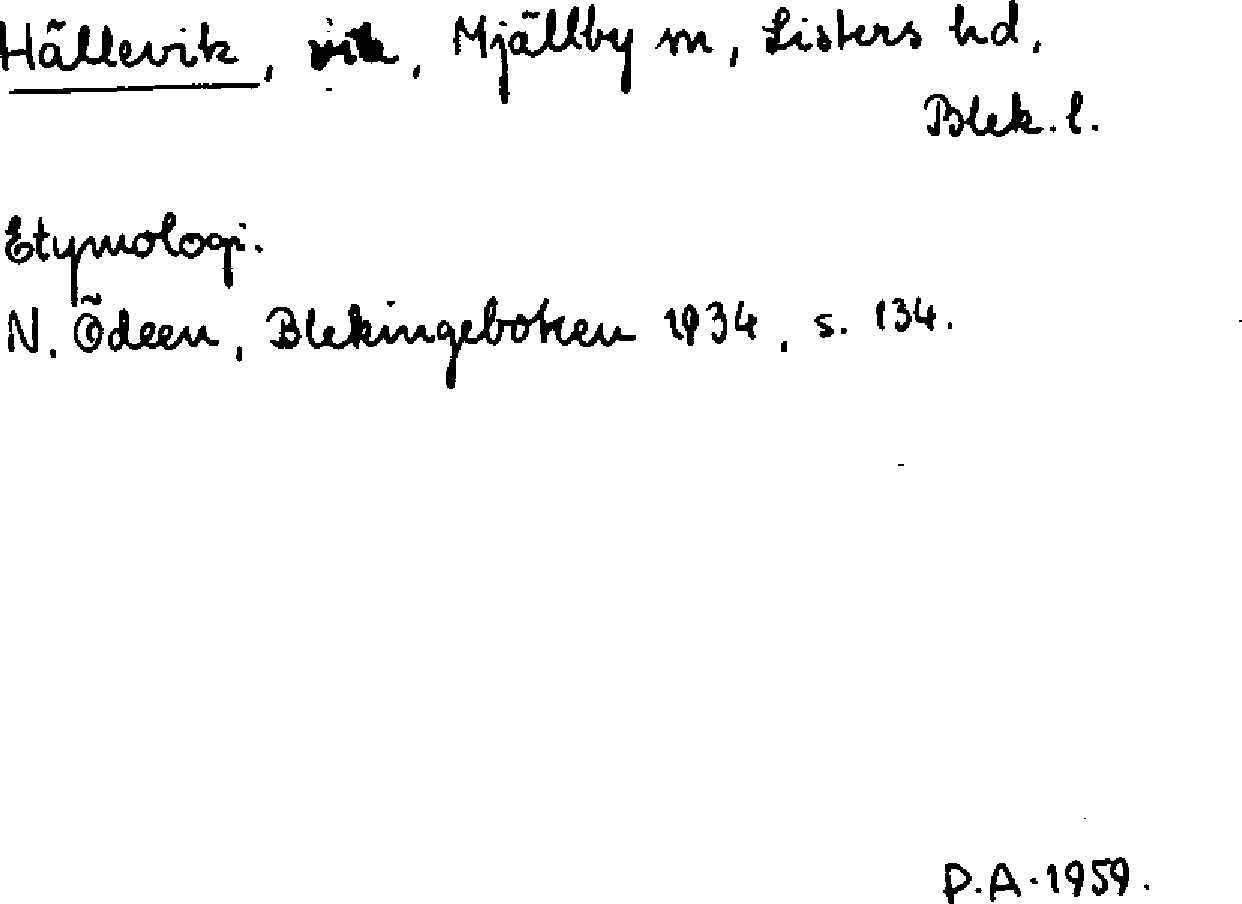 Hällevik, vik, Mjällby sn, Listers hd,
Blek. l.
Etymologi.
N. Ödeen, Blekingeboken 1934, s. 134.
P.A. 1959.